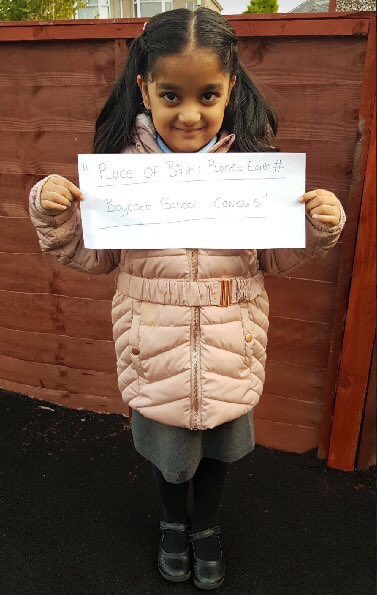 "Place Of Birth: Planet Earth #
Boycott School Census'